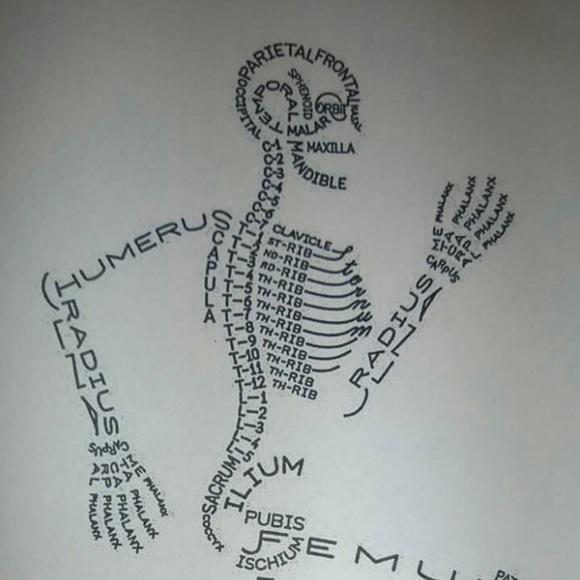 PARIETAL
FRONTAL
OCCIPITAL
SPHENOID
TEMPORAL
ORBIT
NASAL
MALAR
MAXILLA
MANDIBLE
C-1
C-2
C-3
C-4
C-5
C-6
C-7
CLAVICLE
SCAPULA
STERNUM
T-1 ST-RIB
T-2 ND-RIB
T-3 RD-RIB
T-4 TH-RIB
T-5 TH-RIB
T-6 TH-RIB
T-7 TH-RIB
T-8 TH-RIB
T-9 TH-RIB
T-10 TH-RIB
T-11 TH-RIB
T-12 TH-RIB
L-1
L-2
L-3
L-4
L-5
HUMERUS
RADIUS
ULNA
CARPUS
METACARPAL
PHALANX
PHALANX
PHALANX
PHALANX
RADIUS
ULNA
CARPUS
METACARPAL
PHALANX
PHALANX
PHALANX
PHALANX
SACRUM
COCCYX
ILIUM
PUBIS
ISCHIUM
FEMU